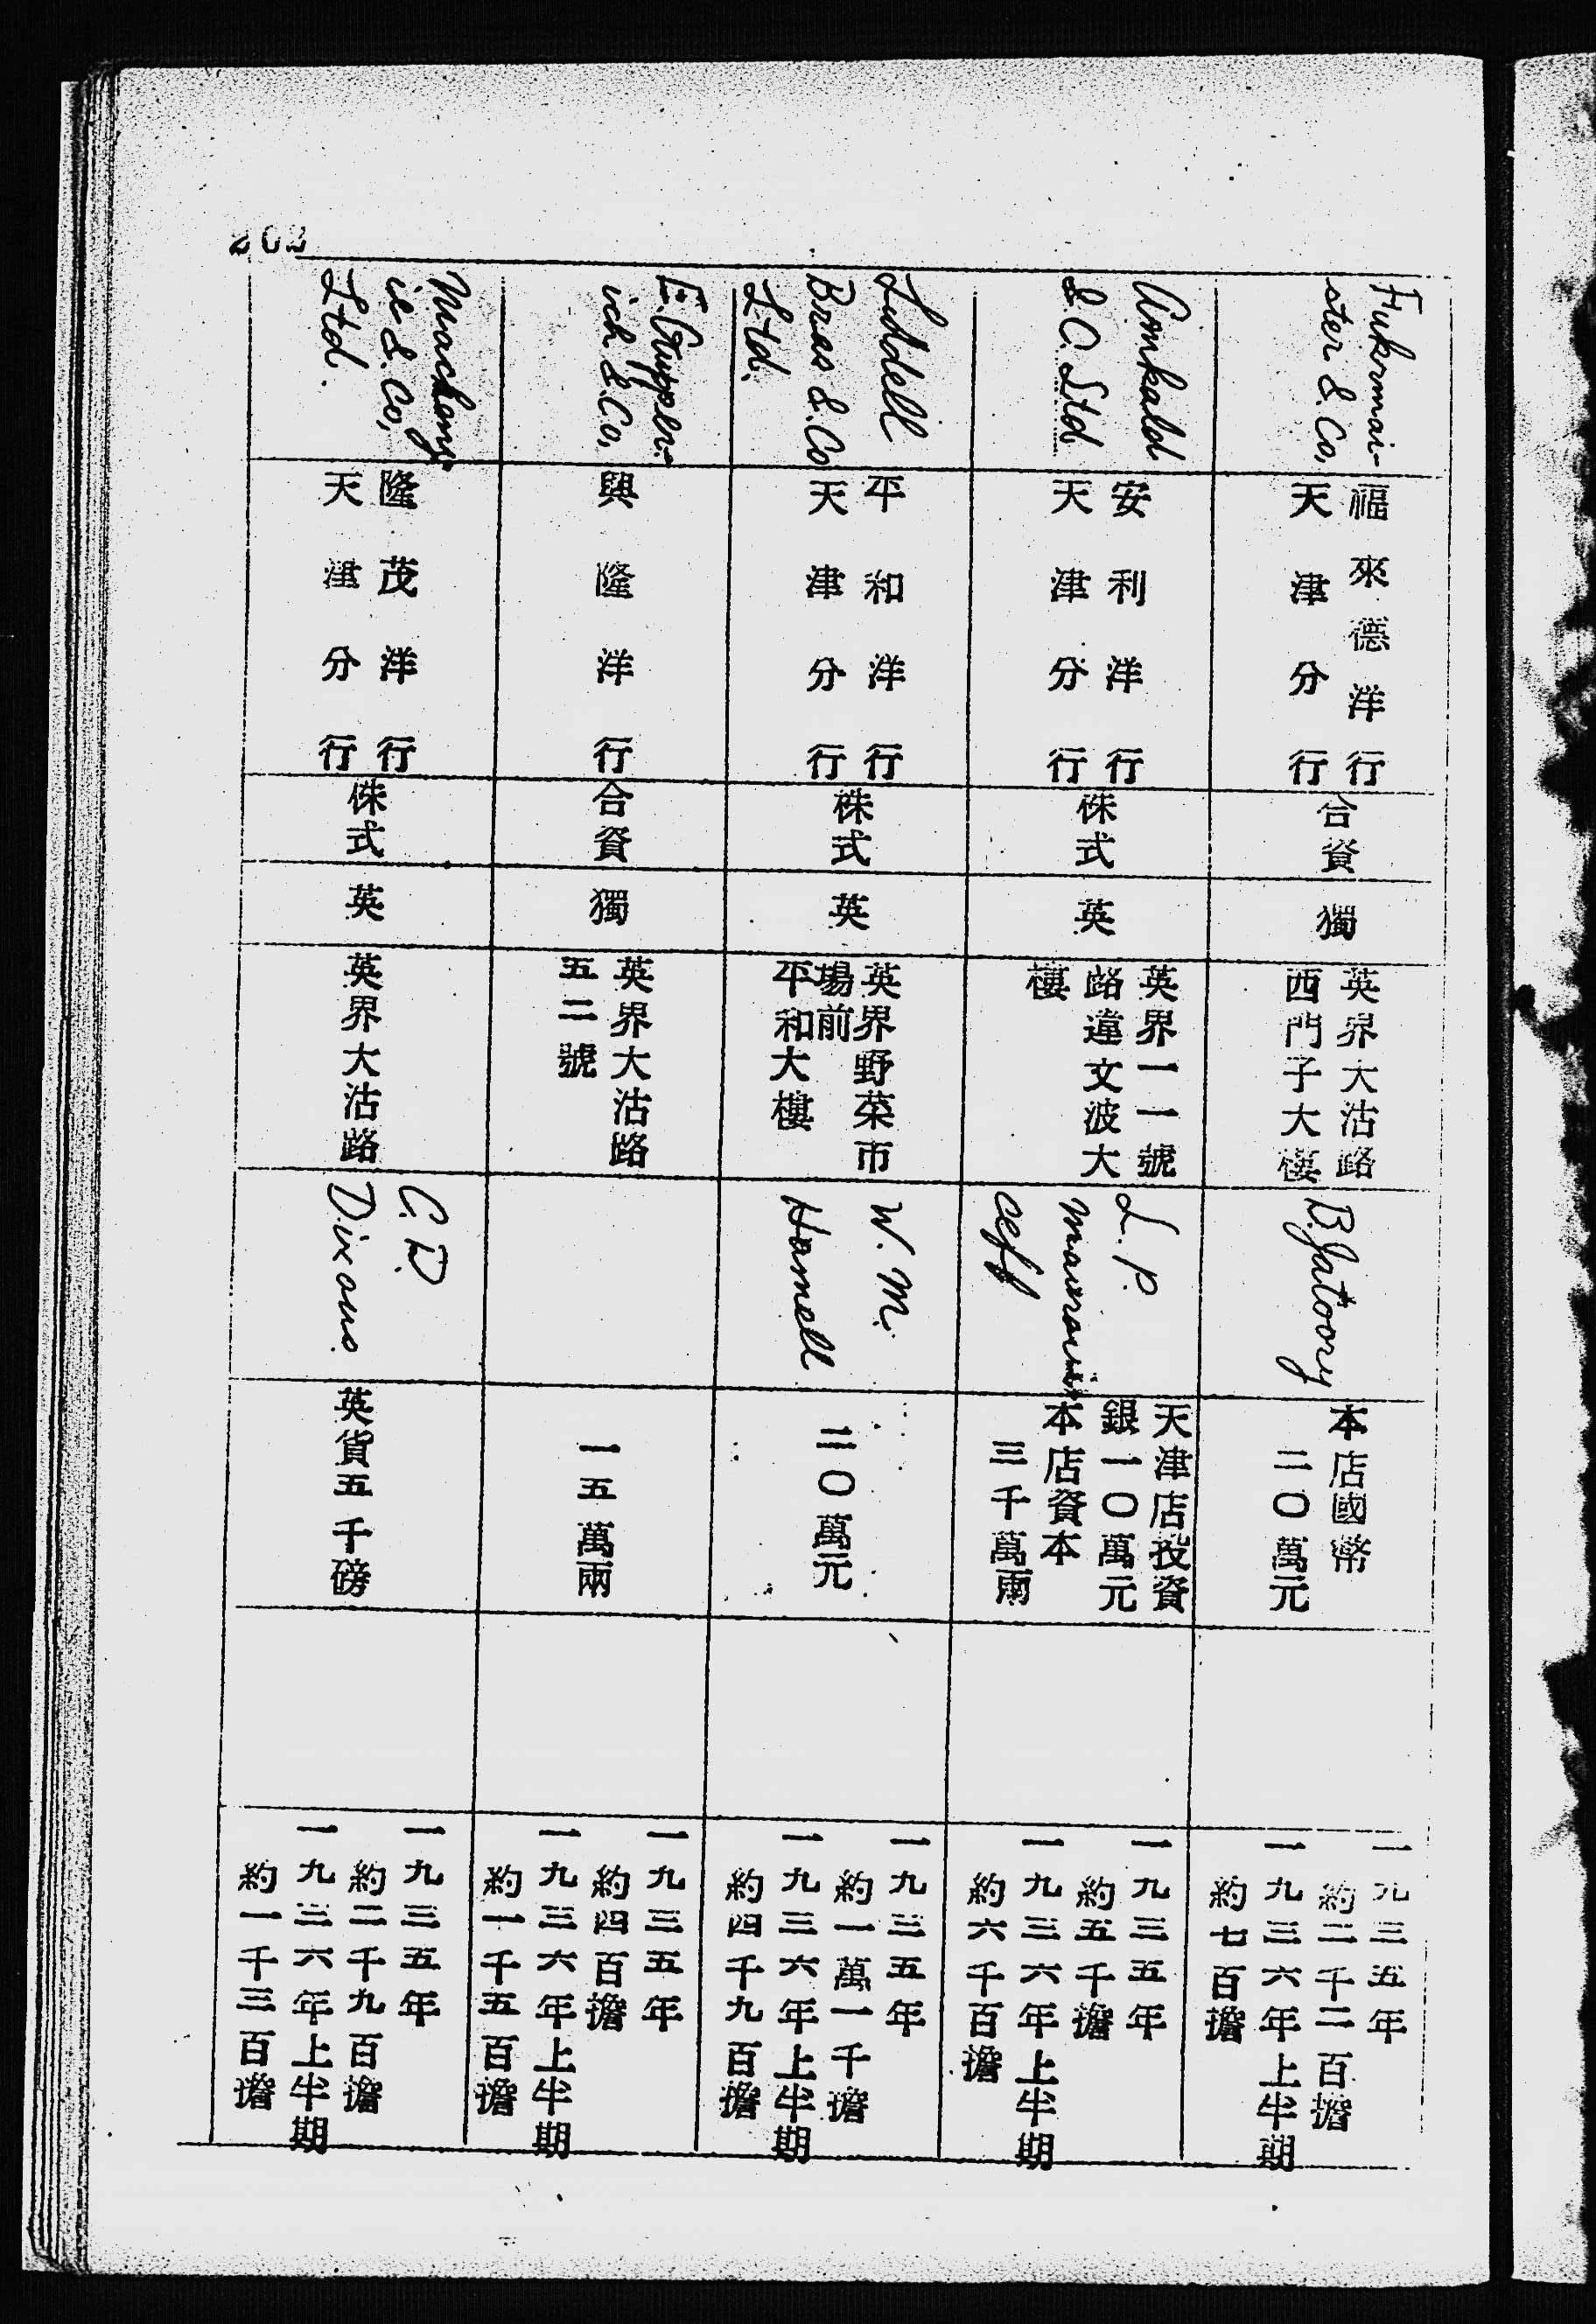 202
Fukrmai-
ster & Co,
福來德洋行
天津分行
合資
獨
英界大沽路
西門子大樓
B. Jatoory
本店國幣
二〇萬元
一九三五年
約二千二百擔
一九三六年上半期
約七百擔
Arnkald
& C. Ltd
安利洋行
天津分行
株式
英
英界一一號
路違文波大
樓
L. P.
ceff
天津店投資
銀一〇萬元
本店資本
三千萬兩
一九三五年
約五千擔
一九三六年上半期
約六千百擔
Liddell
Bros & Co
Ltd.
平和洋行
天津分行
株式
英
英界野菜市
場前
平和大樓
W. M.
Hamell
二〇萬元
一九三五年
約一萬一千擔
一九三六年上半期
約四千九百擔
E. Gupper-
ich & Co,
興隆洋行
合資
獨
英界大沽路
五二號
一五萬兩
一九三五年
約四百擔
一九三六年上半期
約一千五百擔
Mackenz
ie & Co,
Ltd.
隆茂洋行
天津分行
株式
英
英界大沽路
C. D.
Dixons.
英貨五千磅
一九三五年
約二千九百擔
一九三六年上半期
約一千三百擔